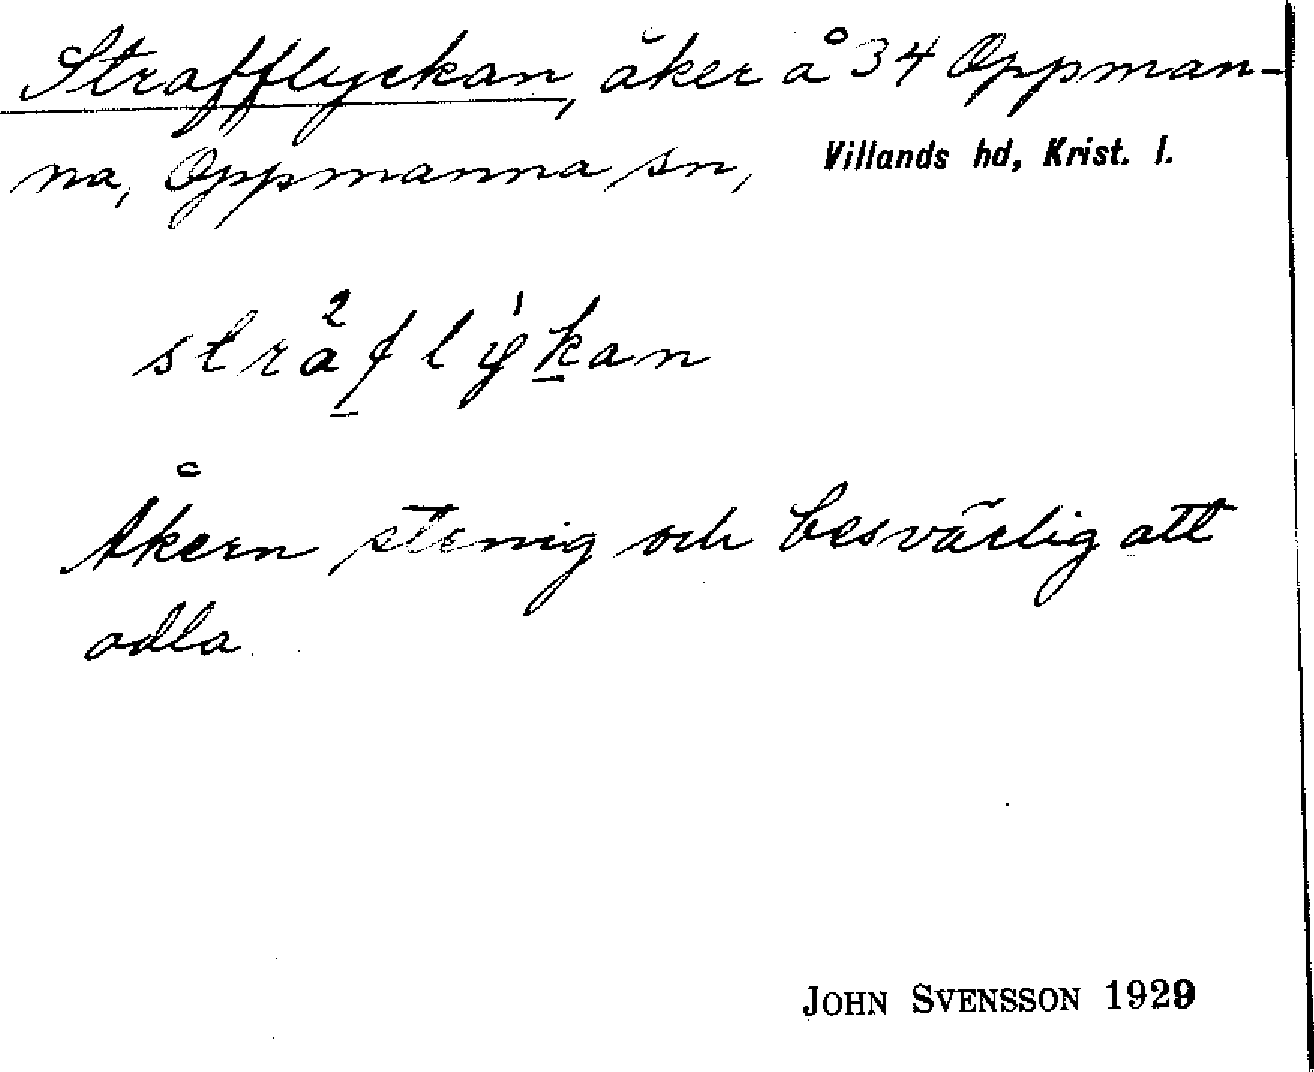 Strafflyckan, åker å 34 Oppman-
na, Oppmanna sn, Villands hd, Krist. l.
stra²flý̵kan
Åkern stenig och besvärlig att
odla
JOHN SVENSSON 1929